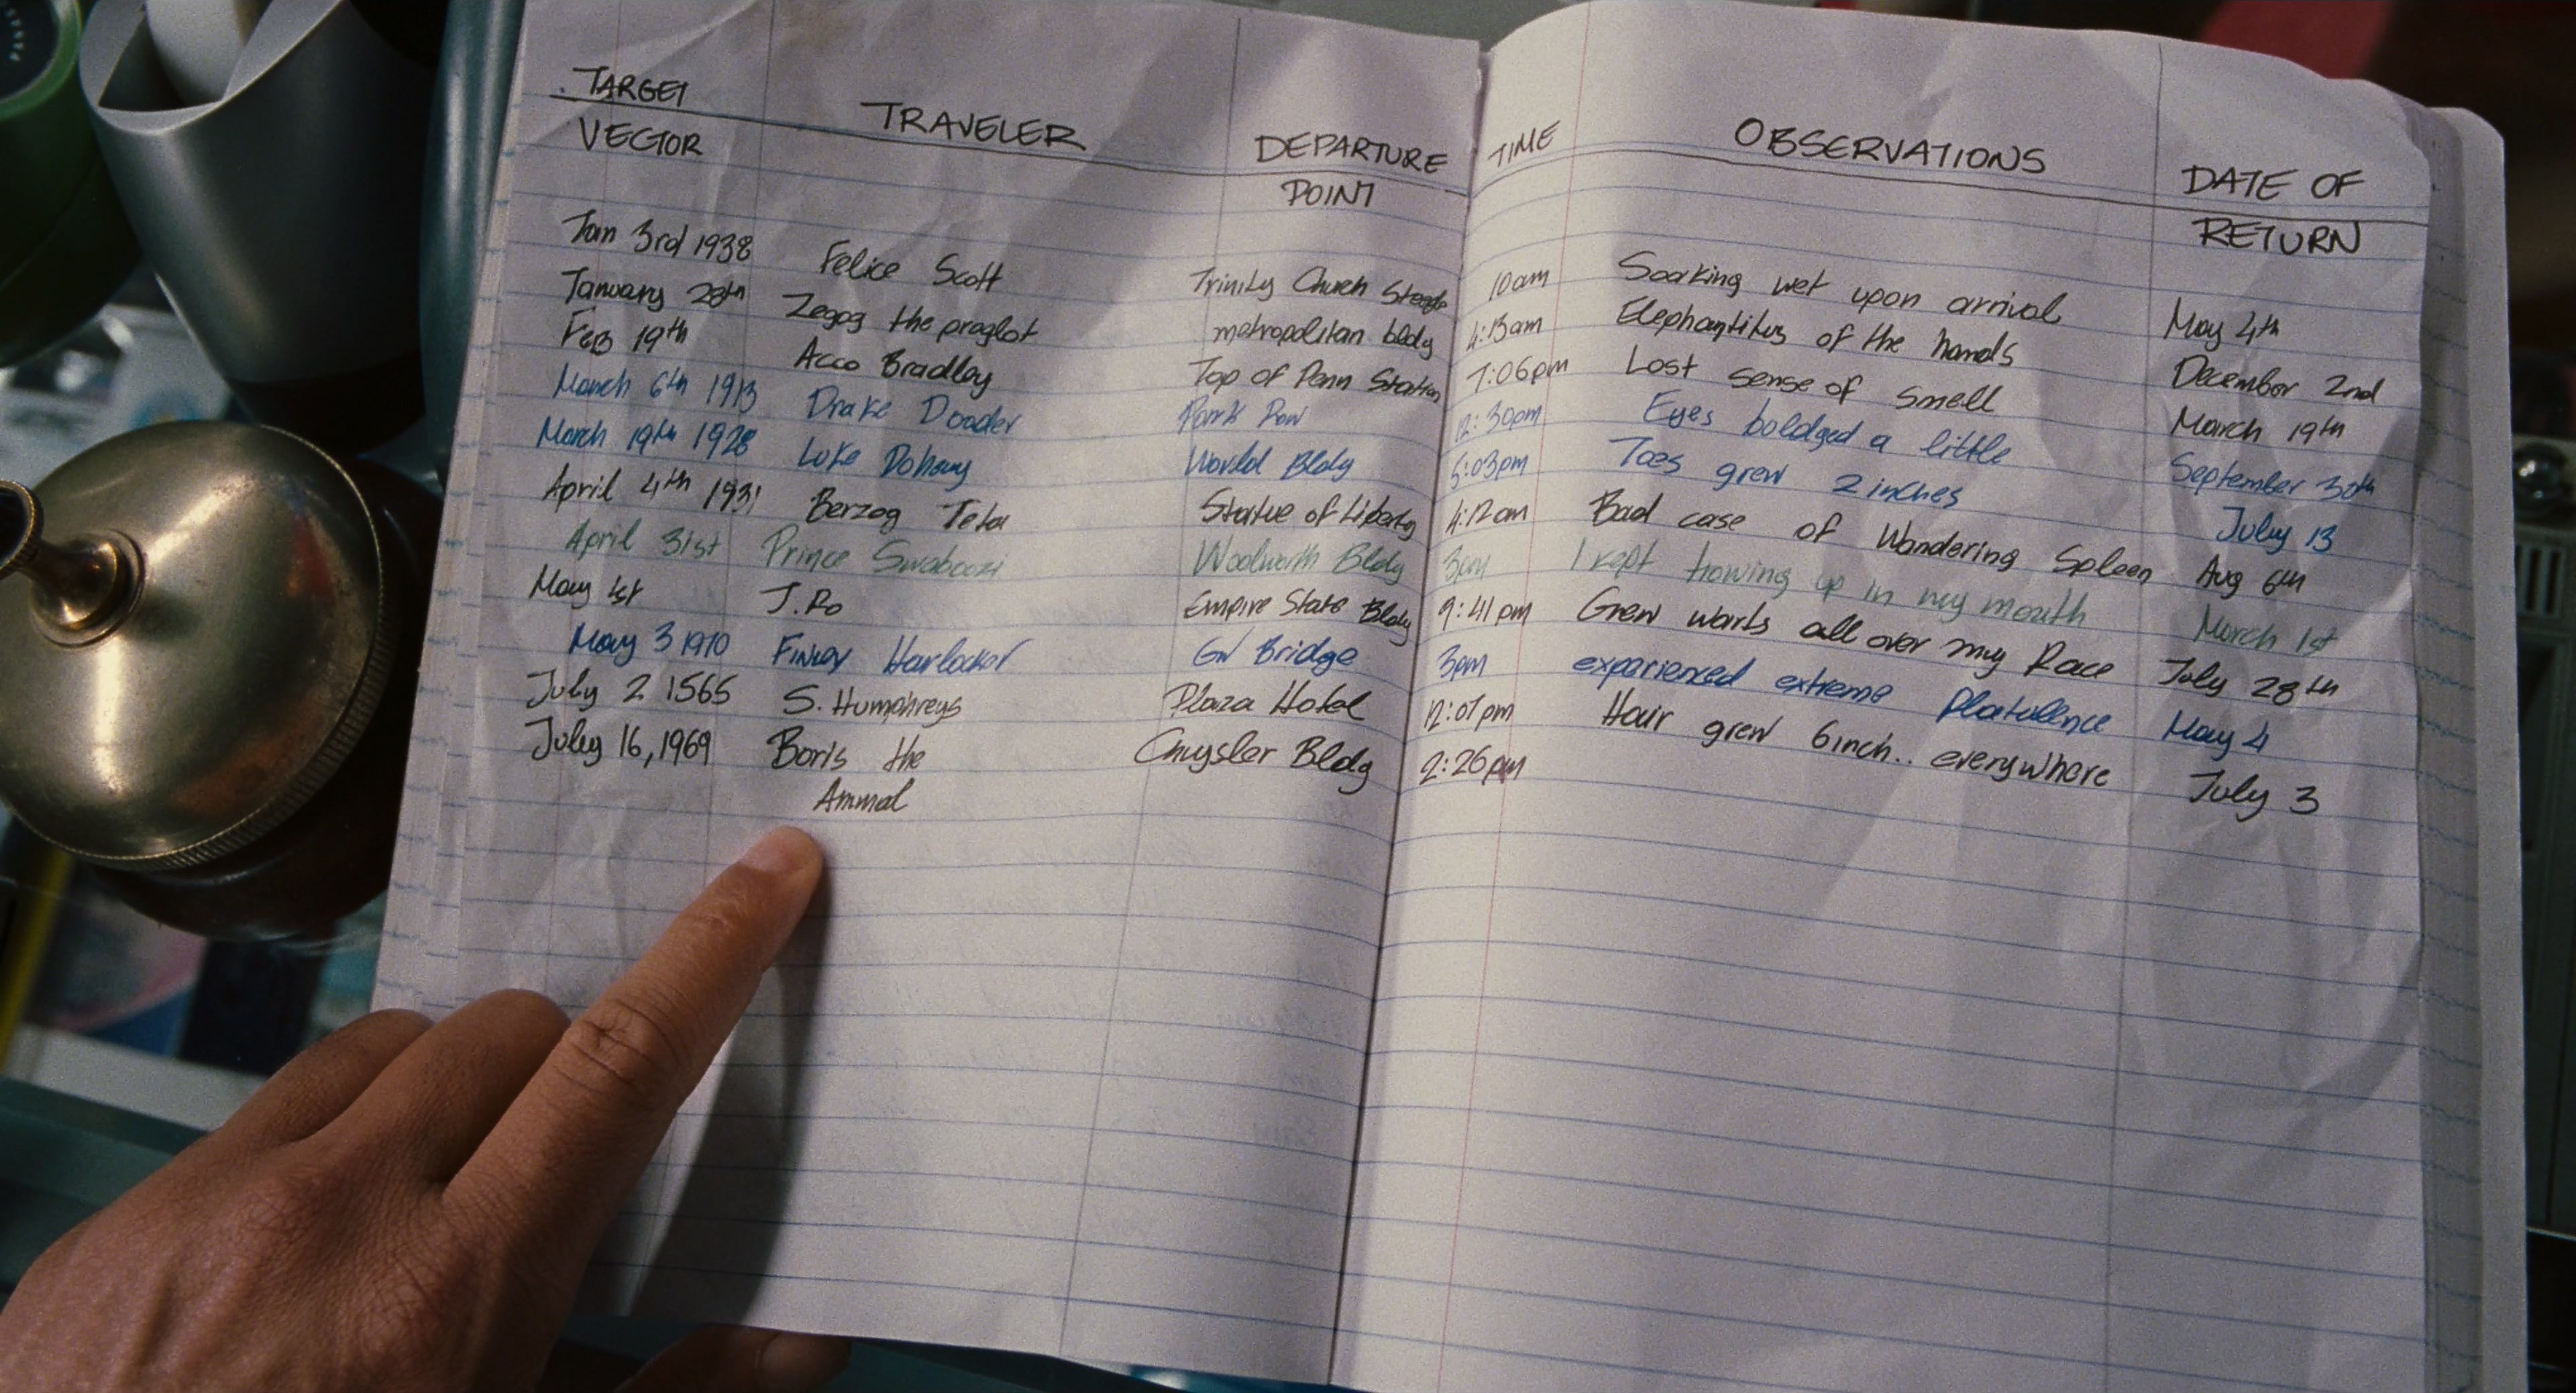 TARGET VECTOR TRAVELER DEPARTURE POINT TIME OBSERVATIONS DATE OF RETURN
Jan 3rd 1938 Felice Scott Trinity Church Steeple 10am Soaking wet upon arrival May 4th
January 28th Zegog the praglot metropolitan bldg 4:13am Elephantitus of the hands December 2nd
Feb 19th Acco Bradley Top of Penn Station 7:06pm Lost sense of smell March 19th
March 6th 1913 Drake Dooder Park Row 12:30pm Eyes boldged a little September 30th
March 19th 1928 Luke Dohany World Bldg 5:03pm Toes grew 2 inches July 13
April 4th 1931 Berzog Statue of Liberty 4:12am Bad case of Wandering Spleen Aug 6th
April 31st Prince Swaboozi Woolworth Bldg 3pm I kept trowing up in my mouth March 1st
May 1st J.Ro Empire State Bldg 9:41pm Grew warts all over my Face July 28th
May 3 1910 Finley Harlocker GW Bridge 3pm experienced extreme Flatullnce May 4
July 2 1565 S. Humphreys Plaza Hotel 12:01pm Hair grew 6inch.. everywhere July 3
July 16, 1969 Boris the Chrysler Bldg 2:26pm
Animal